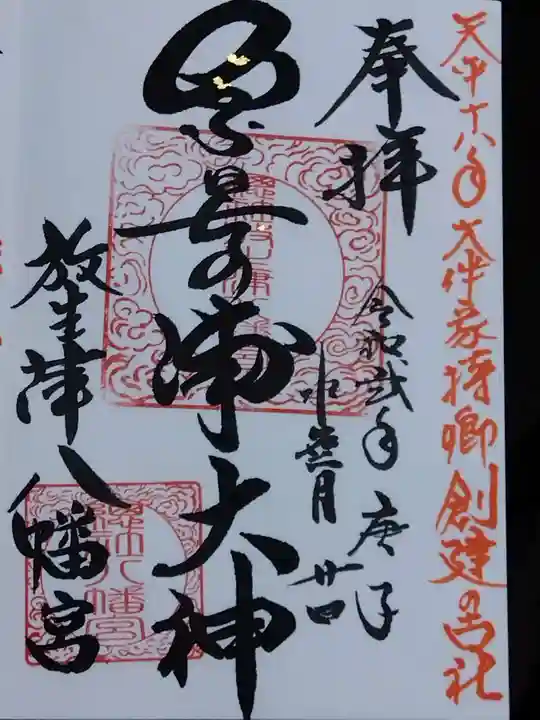 天平十八年 大伴家持卿創建の古社
奉拝
令和弐年 庚子
水無月 廿四
景の浦大神
放生津八幡宮
八幡宮